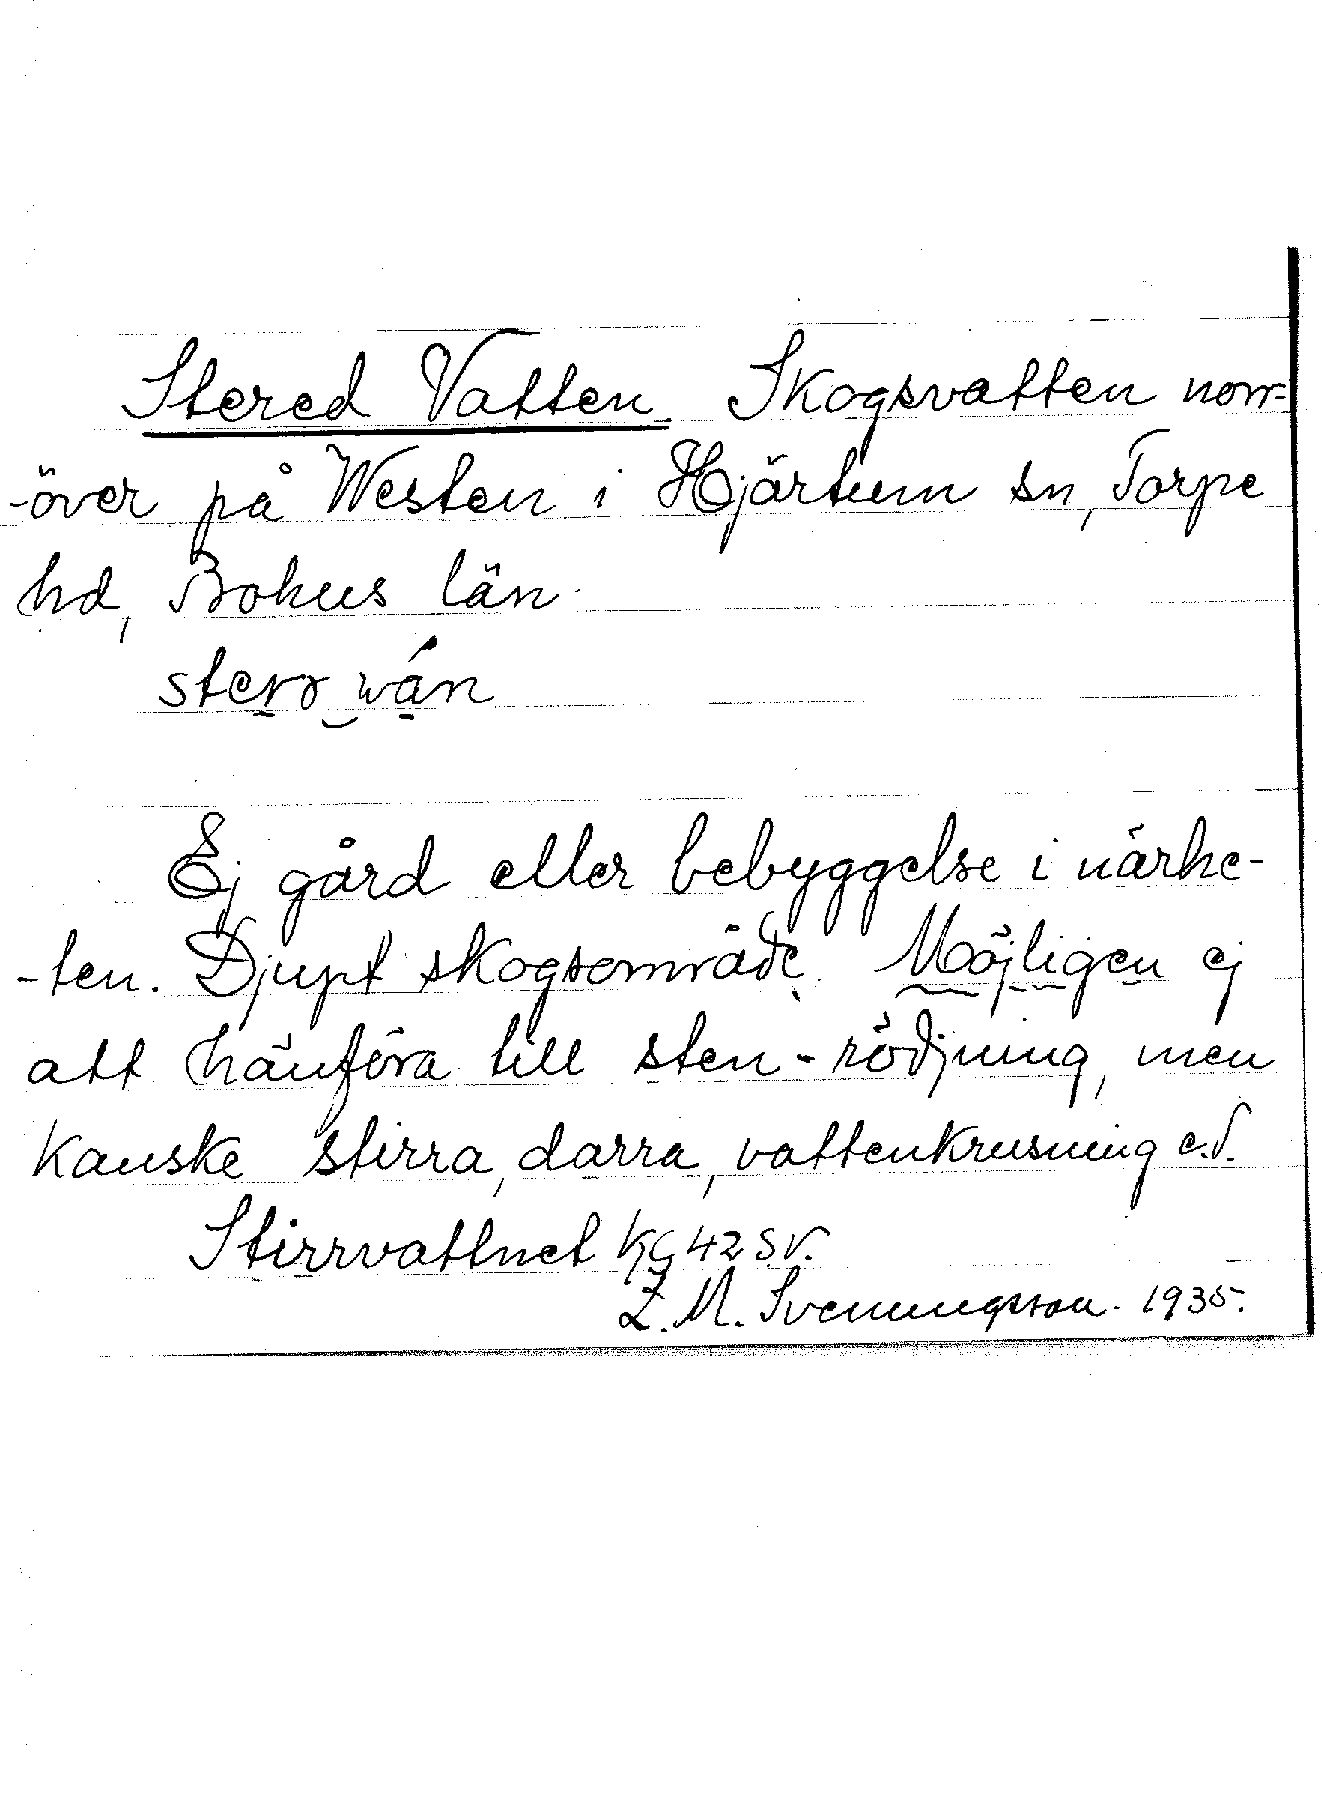 Stered Vatten. Skogsvatten norr-
-över på Westen i Hjärtum sn, Torpe
hd, Bohus län.
Ej gård eller bebyggelse i närhe-
-ten. Djupt skogsområde. Möjligen ej
att hänföra till sten-rödjning, men
kanske stirra, darra, vattenkrusning e.d.
Stirrvattnet KG 42 SV.
Z. M. Svenungsson. 1935.